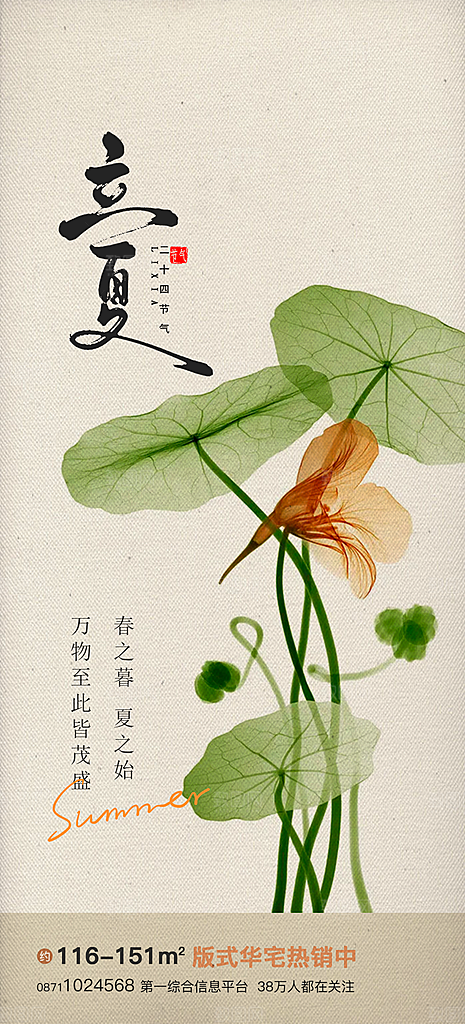 立夏
二十四节气
LIXIA
节气
春之暮 夏之始
万物至此皆茂盛
Summer
约116-151m² 版式华宅热销中
08711024568 第一综合信息平台 38万人都在关注